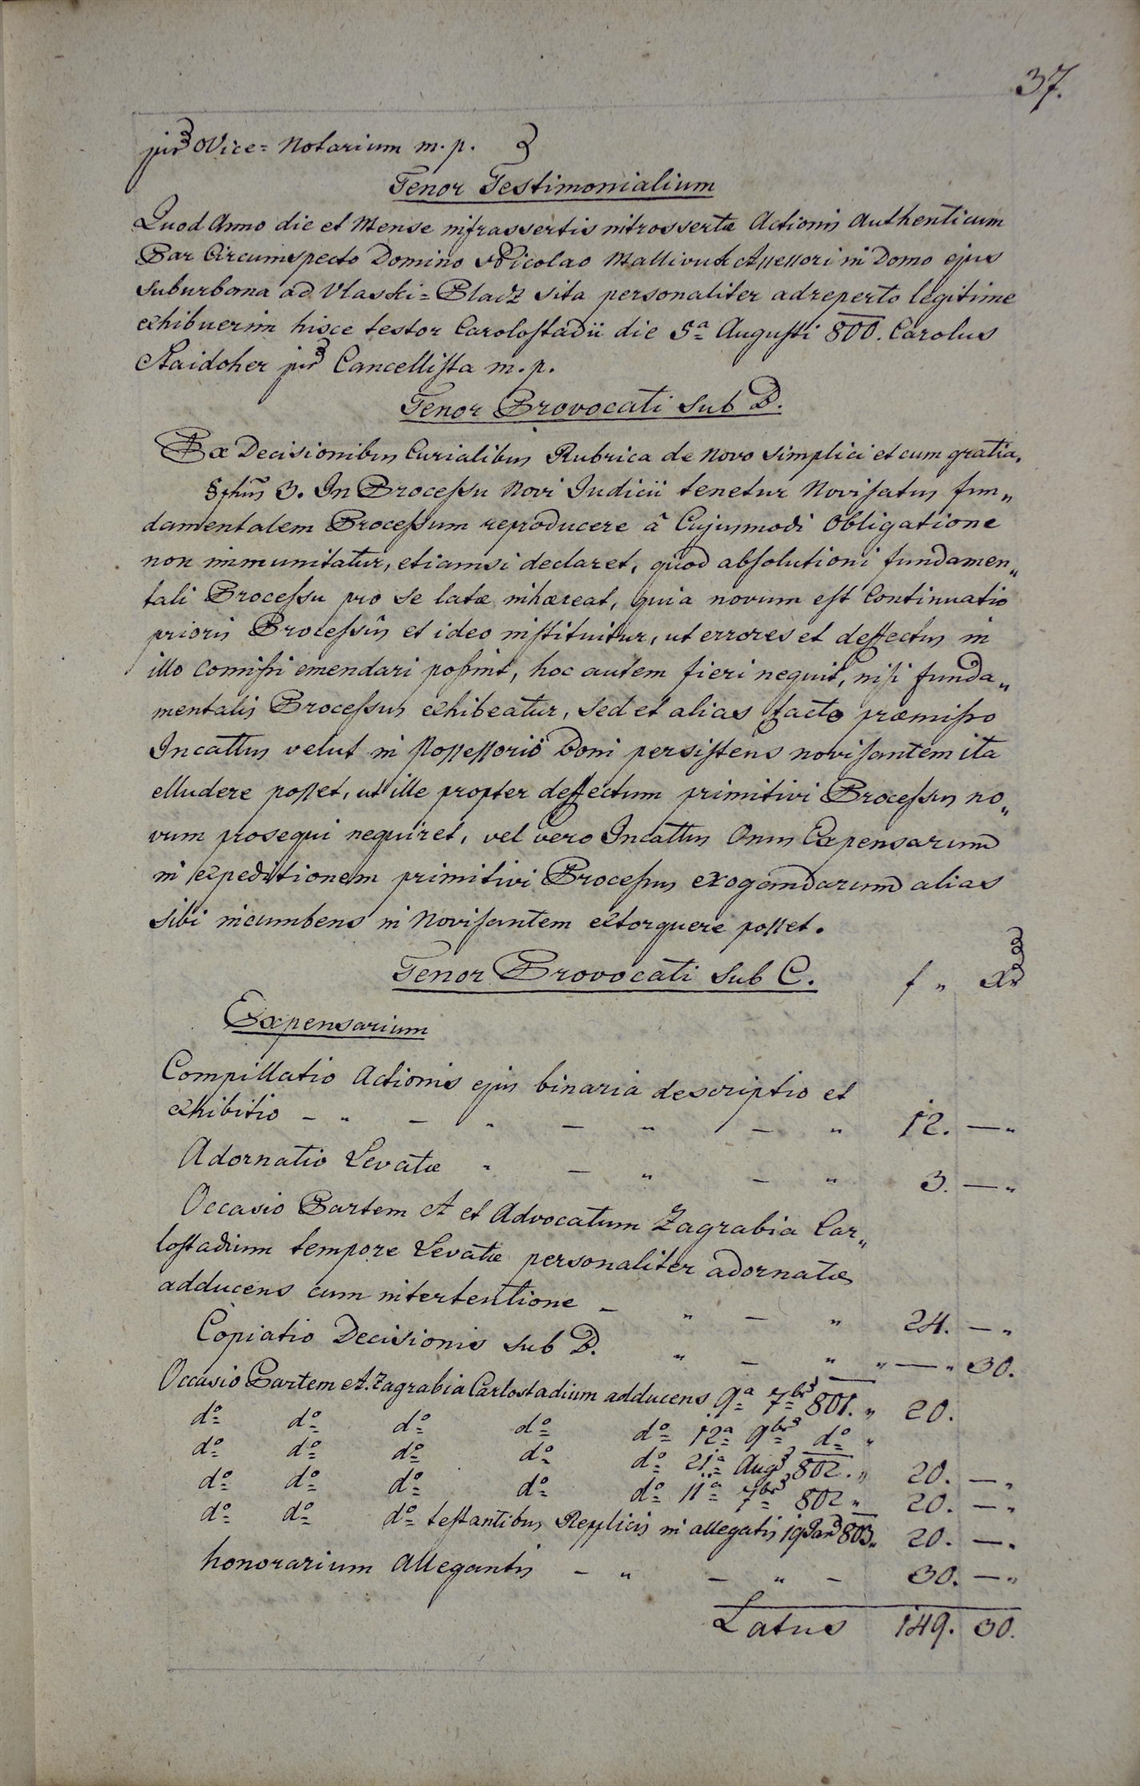 37.
jur Vice=Notarium m. p.
Tenor Testimonialium
Quod Anno die et Mense infrassertis introssertæ Actionis Authenticum
Par Circumspecto Domino Nicolao Mallivuk Assessori in Domo ejus
suburbana ad Vlaski=Placz sita personaliter adreperto legitime
exhibuerim hisce testor Carolostadii die 5a Augusti 800. Carolus
Haidoher jur Cancellista m. p.
Tenor Provocati sub B.
Ex Decisionibus Curialibus Rubrica de Novo simplici et cum gratia.
§phus 3. In Processu Novi Judicii tenetur Novisatus fun„
damentalem Processum reproducere â Cujusmodi Obligatione
non immunitatur, etiamsi declaret, quod absolutioni fundamen„
tali Processu pro se latæ inhæreat, quia novum est Continuatio
prioris Processûs et ideo instituitur, ut errores et deffectus in
illo Comissi emendari possint, hoc autem fieri nequit, nisi funda„
mentalis Processus exhibeatur, sed et alias facto præmisso
Incattus velut in Possessorio Boni persistens novisantem ita
elludere posset, ut ille propter deffectum primitivi Processus no„
vum prosequi nequiret, vel vero Incattus Onus Expensarum
in expeditionem primitivi Processus exogandarum alias
sibi incumbens in Novisantem extorquere posset.
Tenor Provocati sub C. f „ xr
Expensarium
Compillatio Actionis ejus binaria descriptio et
exhibitio – „ – „ – „ – „ 12. – „
Adornatio Levatæ „ – „ – „ 3. – „
Occasio Partem A et Advocatum Zagrabia Car„
lostadium tempore Levatæ personaliter adornatæ
adducens cum intertentione – „ – „ 24. – „
Copiatio Decisionis sub B. „ – „ „ – „ 30.
Occasio Partem A. Zagrabia Carlostadium adducens 9a 7bris 801. „ 20.
do do do do do 12a 9bris do „
do do do do do 21a Augs 802. „ 20. – „
do do do do do 11a 7bris 802 „ 20. – „
do do do testantibus Replicis in allegatis 19 Jan 803. „ 20. – „
honorarium Allegantis – „ – „ – 30. – „
Latus 149. 30.